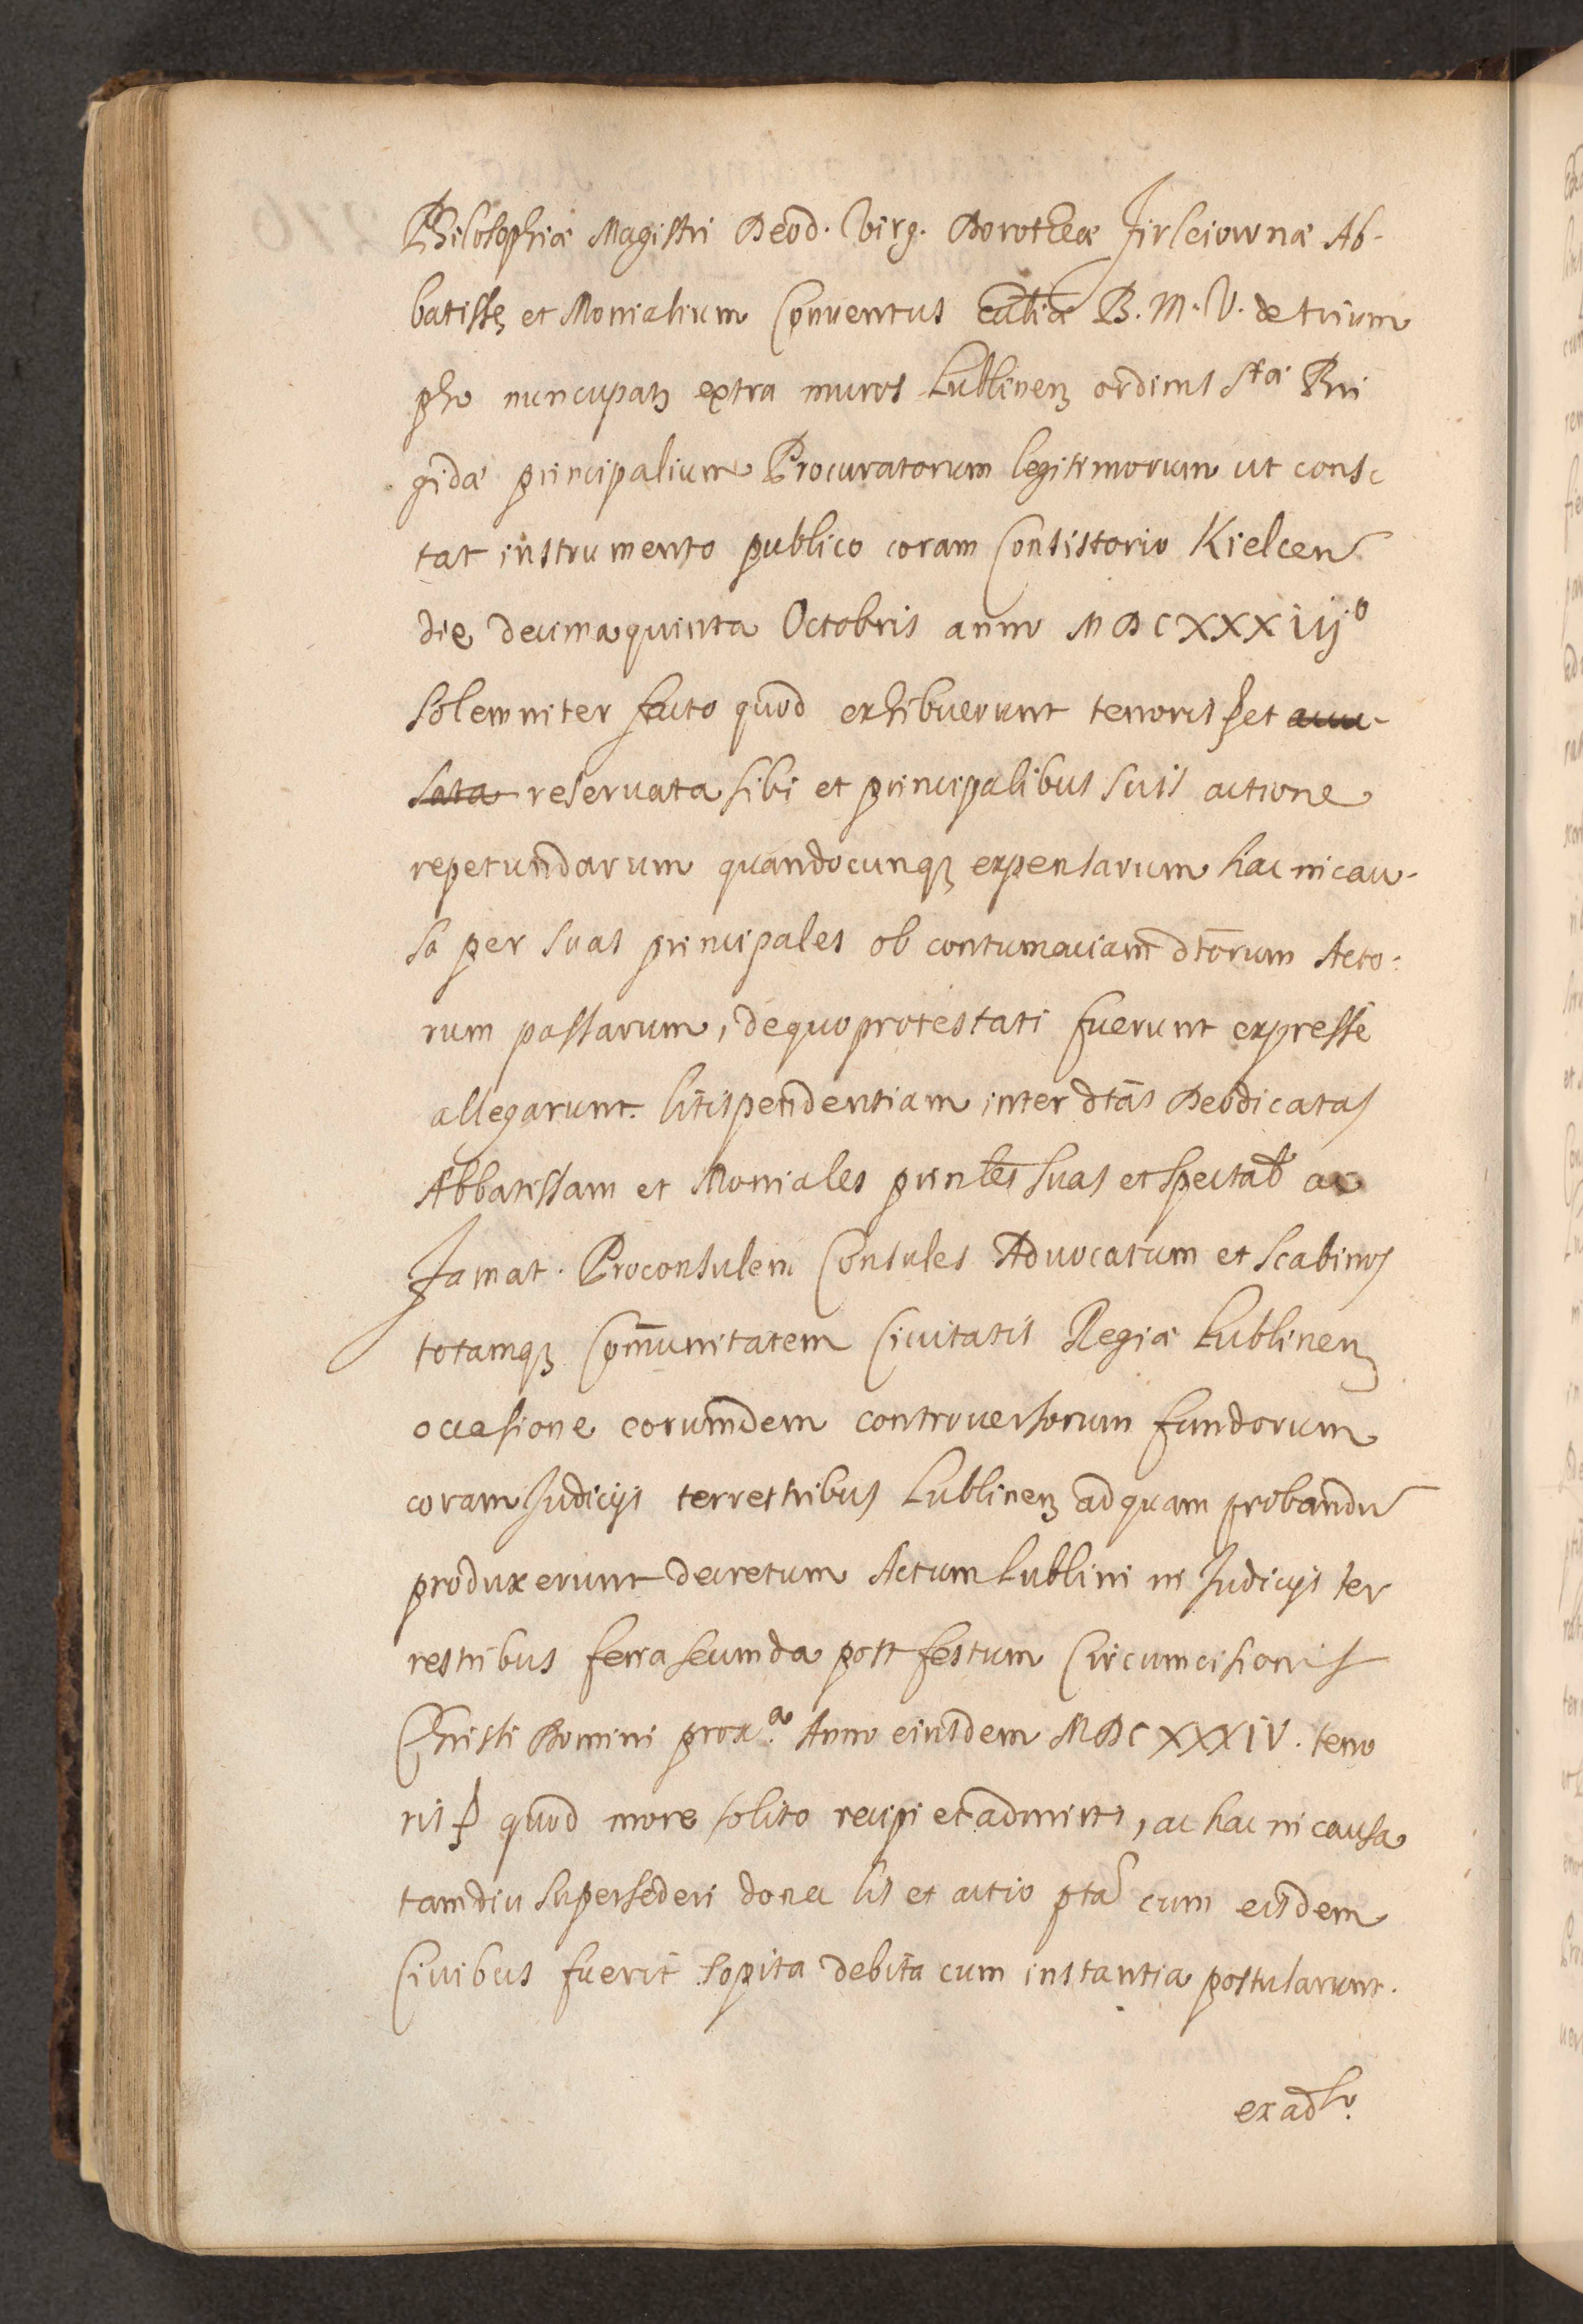 Philosophiæ Magistri Deod. Virg. Dorotheæ Firleiownæ Ab-
batissę et Monialium Conuentus Eccliæ B. M. V. de trium
pho nuncupatꝫ extra muros Lublinenꝫ ordinis Stæ Bri
gidæ principalium Procuratorum legitimorum ut cons-
tat instrumento publico coram Consistorio Kielcen
die decimaquinta Octobris anno MDCXXXiijº
solemniter facto quod exhibuerunt tenoris et accu-
sata reseruata sibi et principalibus suis actione
repetundarum quandocunqꝫ expensarum hac in cau-
sa per suas principales ob contumaciam dtorum Acto-
rum passarum, de quo protestati fuerunt expresse
allegarunt. litispendentiam inter dtas Deodicatas
Abbatissam et Moniales prinles suas et spectab ac
Famat. Proconsulem Consules Aduocatum et Scabinos
totamqꝫ Comunitatem Ciuitatis Regiæ Lublinenꝫ
occasione eorumdem controuersorum fundorum
coram Judicijs terrestribus Lublinenꝫ ad quam probandu
produxerunt decretum Actum Lublini in Judicijs ter
restribus feria secunda post festum Circumcisionis
Christi Domini proxª. Anno eiusdem MDCXXXIV. teno
ris quod more solito recipi et admitti, ac hac in causa
tamdiu supersederi donec lis et actio pta cum eisdem
Ciuibus fuerit sopita debita cum instantia postularunt.
ex adso.